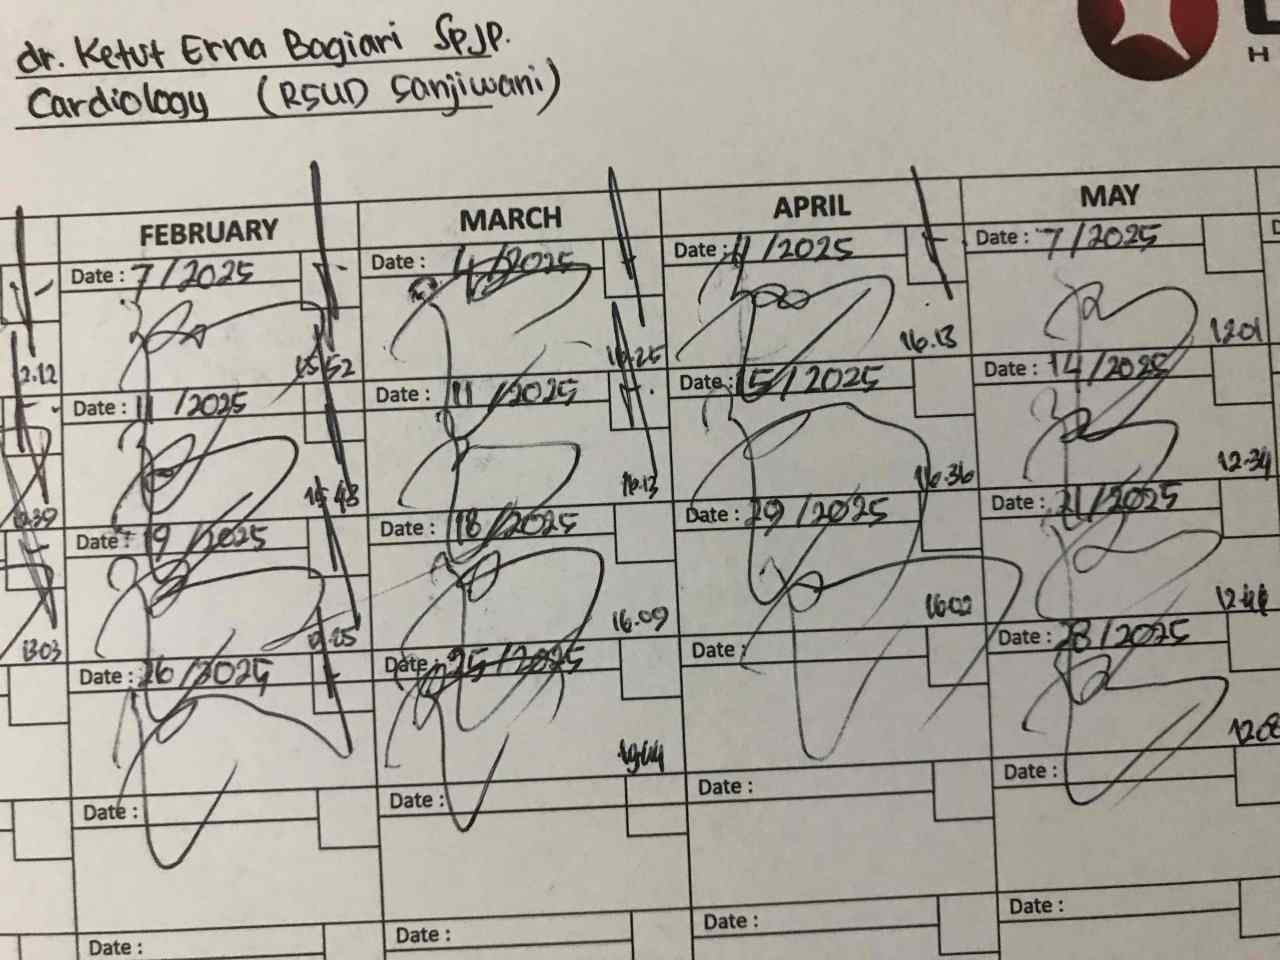 dr. Ketut Erna Bagiari SpJP.
Cardiology (RSUD Sanjiwani)
H
FEBRUARY MARCH APRIL MAY
Date : 7/2025 Date : 4/2025 Date : /2025 Date : 7/2025
2.12 15 52 16.25 16.13 1201
Date : 11/2025 Date : 11/2025 Date : 15/2025 Date : 14/2025
48 16.13 16.36 12.34
Date : 19/2025 Date : 18/2025 Date : 29/2025 Date : 21/2025
1303 16.09 1602
Date : 26/2025 Date : 25/2025 Date : Date : 28/2025
Date : Date : Date : Date :
Date : Date : Date : Date :